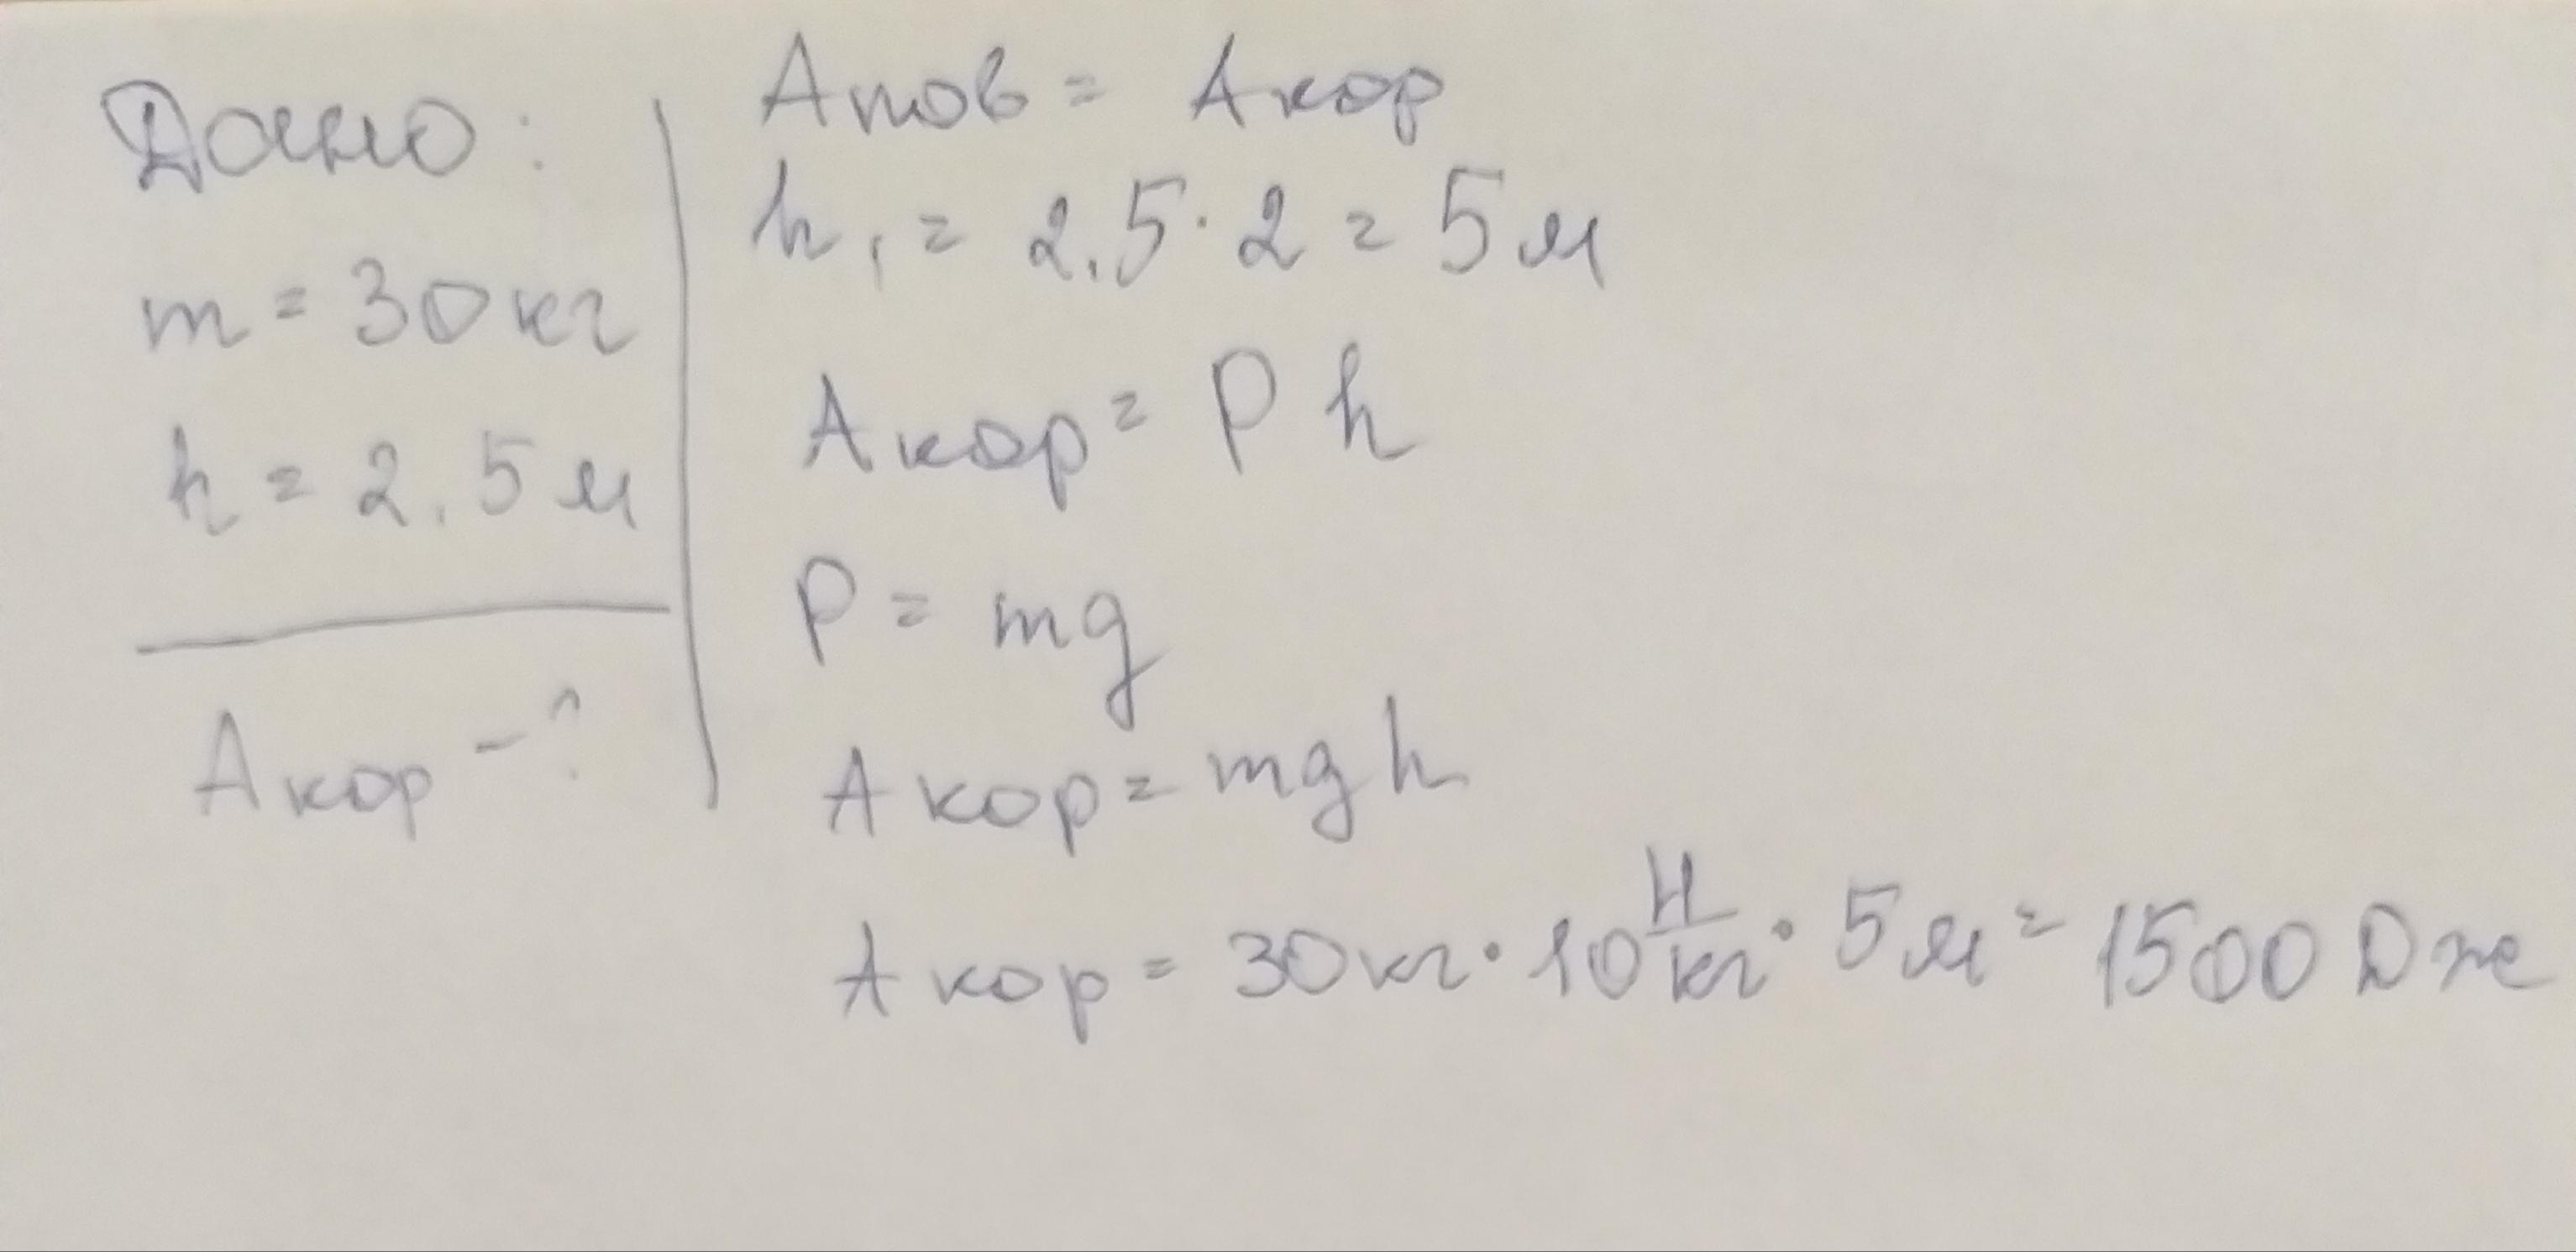 Дано:
m = 30 кг
h = 2,5 м
A кор - ?
A пов = A кор
h₁ = 2,5 · 2 = 5 м
A кор = P h
P = mg
A кор = mgh
A кор = 30 кг · 10 Н/кг · 5 м = 1500 Дж